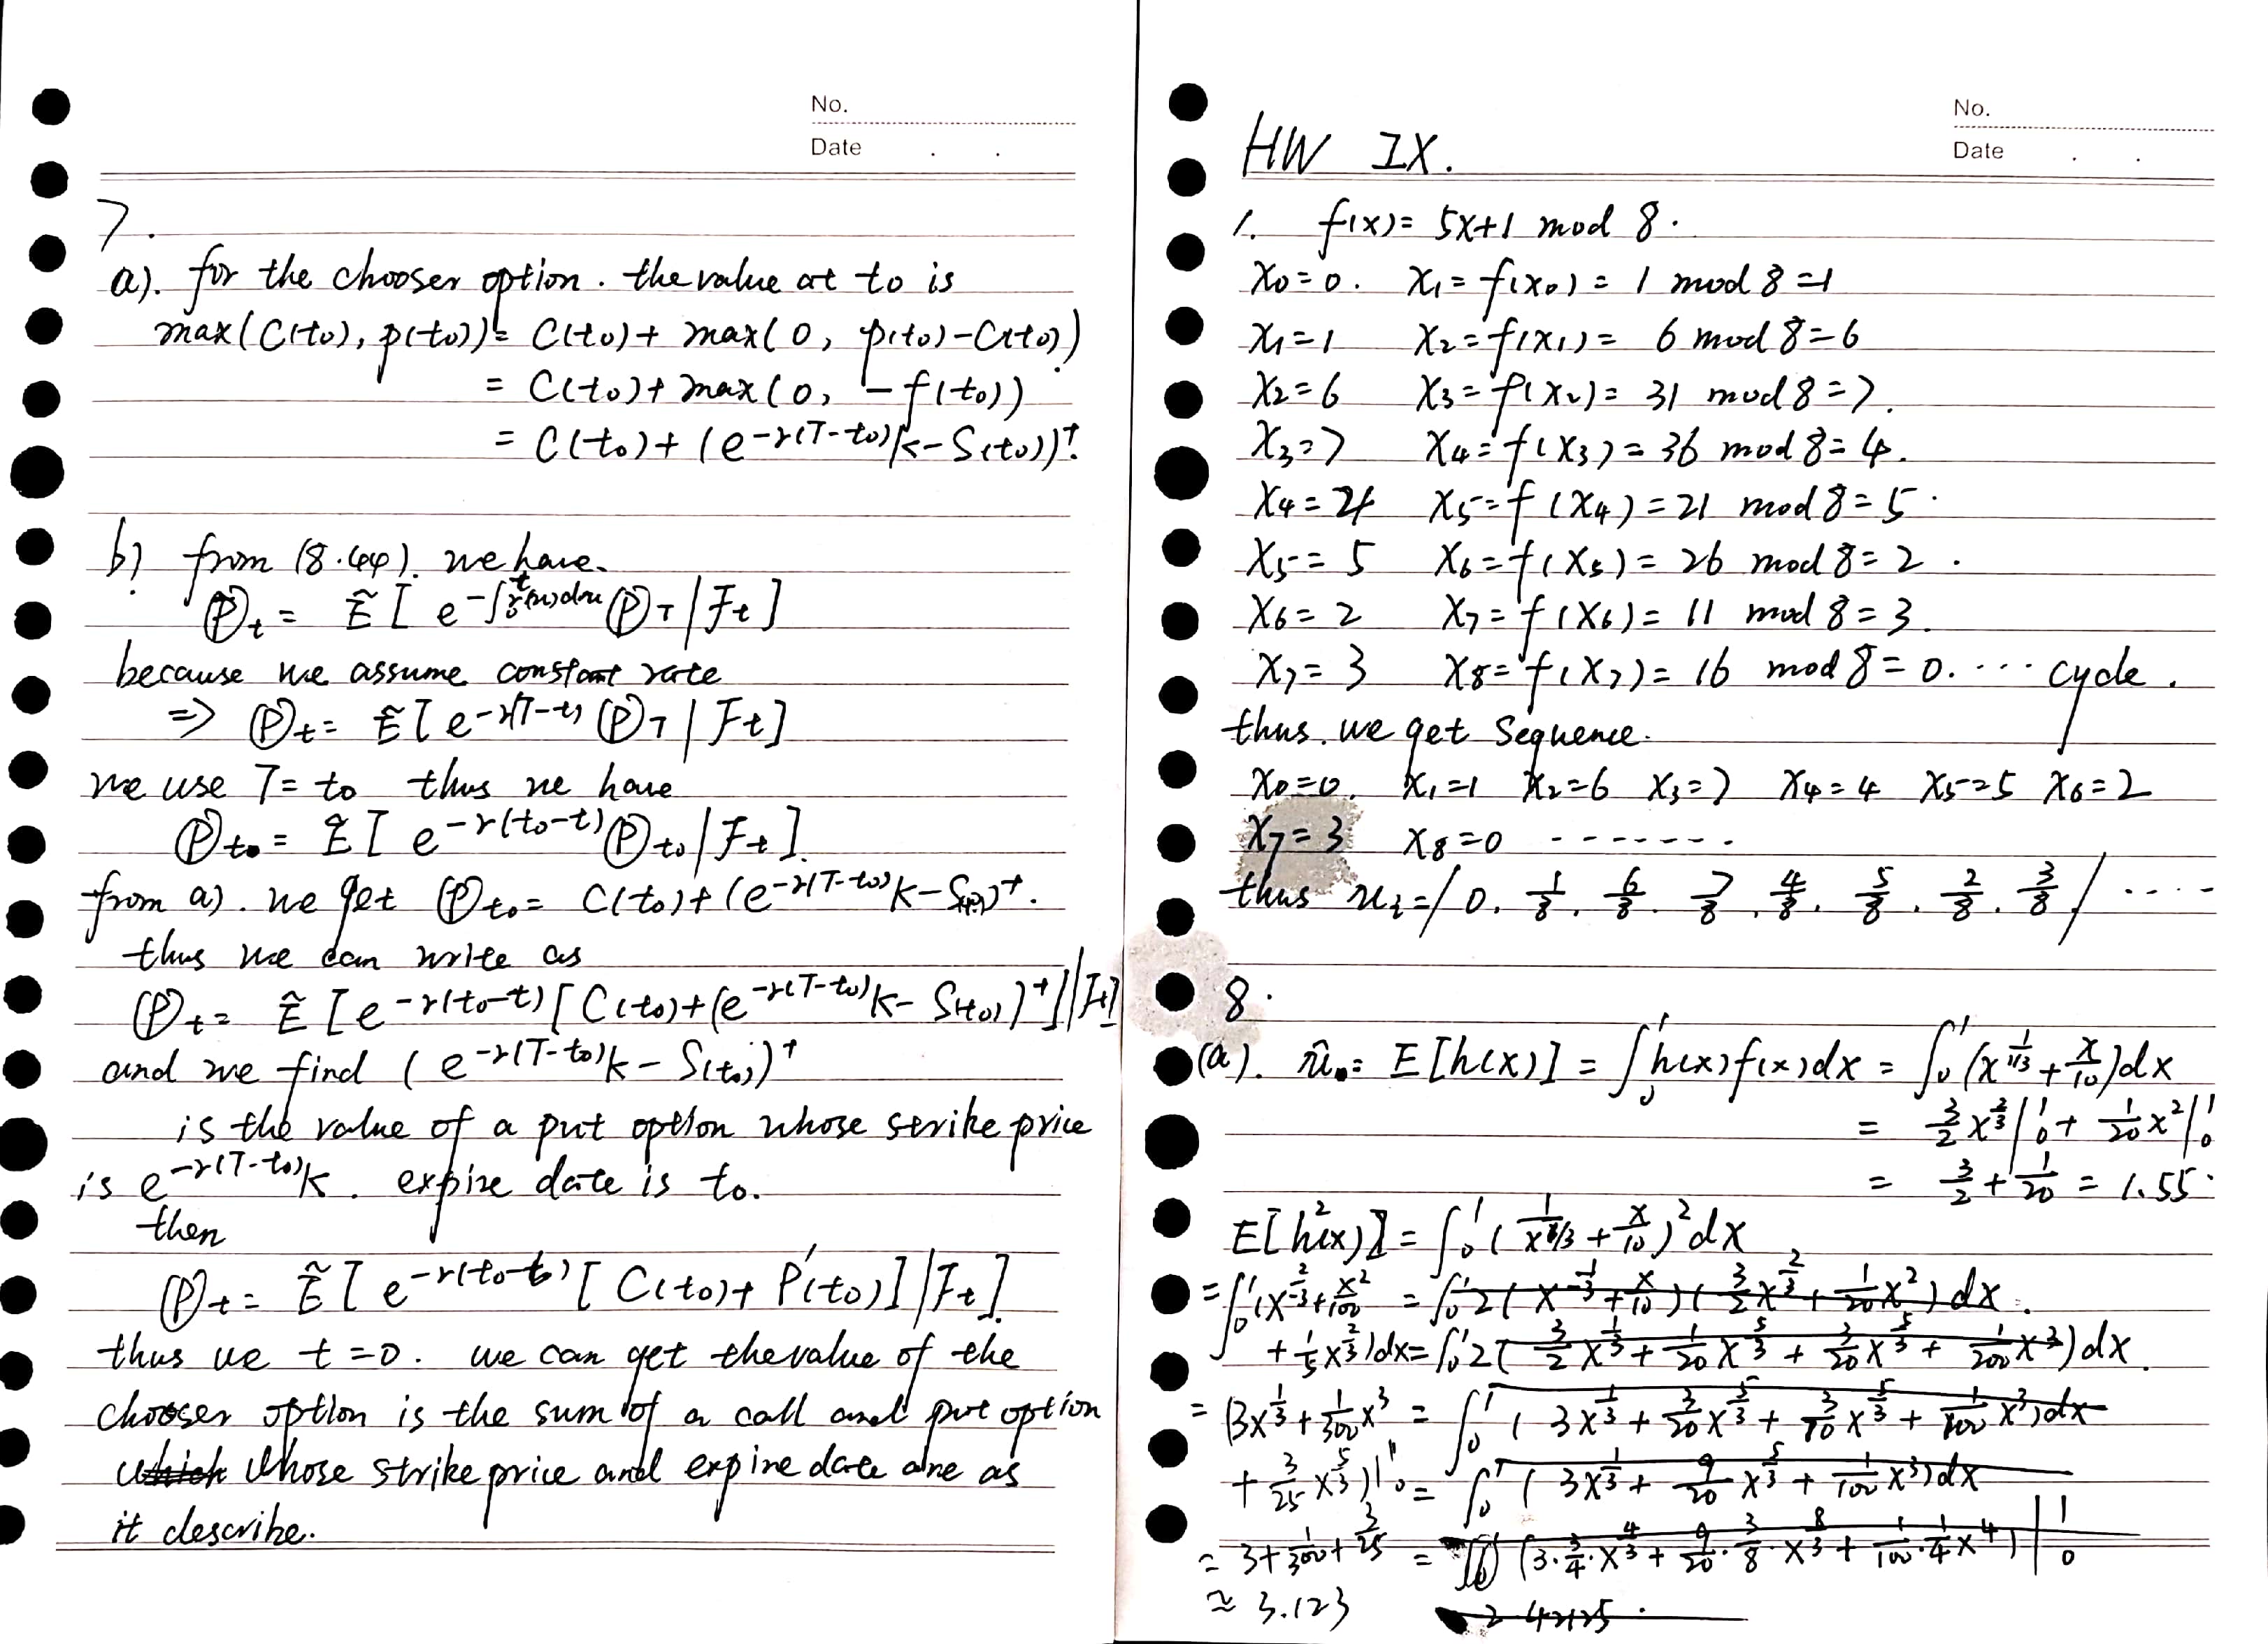 No.
Date . .
7.
a). for the chooser option. the value at to is
max(C(t0), p(t0)) = C(t0) + max(0, p(t0)-C(t0))
= C(t0) + max(0, -f(t0))
= C(t0) + (e^{-r(T-t0)}K - S(t0))^+.
b) from (8.44). we have.
Ⓟ_t = Ẽ[e^{-∫_0^t r(u)du} Ⓟ_T | F_t]
because we assume constant rate
=> Ⓟ_t = Ẽ[e^{-r(T-t)} Ⓟ_T | F_t]
we use T = to thus we have
Ⓟ_{t0} = Ẽ[e^{-r(t0-t)} Ⓟ_{t0} | F_t].
from a). we get Ⓟ_{t0} = C(t0) + (e^{-r(T-t0)}K - S(t0))^+.
thus we can write as
Ⓟ_t = Ẽ[e^{-r(t0-t)}[C(t0) + (e^{-r(T-t0)}K - S(t0))^+] | F_t]
and we find (e^{-r(T-t0)}K - S(t0))^+
is the value of a put option whose strike price
is e^{-r(T-t0)}K. expire date is to.
then
Ⓟ_t = Ẽ[e^{-r(t0-t)}[C(t0) + P'(t0)] | F_t].
thus we t=0. we can get the value of the
chooser option is the sum of a call and put option
which whose strike price and expire date are as
it describe.
No.
Date . .
HW IX.
1. f(x) = 5x+1 mod 8.
X0=0. X1=f(X0)= 1 mod 8 =1
X1=1 X2=f(X1)= 6 mod 8=6
X2=6 X3=f(X2)= 31 mod 8=7.
X3=7 X4=f(X3)=36 mod 8=4.
X4=4 X5=f(X4)=21 mod 8=5.
X5=5 X6=f(X5)=26 mod 8=2.
X6=2 X7=f(X6)=11 mod 8=3.
X7=3 X8=f(X7)=16 mod 8=0. ... cycle.
thus. we get Sequence.
X0=0. X1=1 X2=6 X3=7 X4=4 X5=5 X6=2
X7=3 X8=0 -------
thus u_i=/0. 1/8. 6/8. 7/8. 4/8. 5/8. 2/8. 3/8/ ....
8.
(a). û = E[h(x)] = ∫_0^1 h(x)f(x)dx = ∫_0^1 (1/x^{1/3} + x/10)dx
= 3/2 x^{2/3}|_0^1 + 1/20 x^2|_0^1
= 3/2 + 1/20 = 1.55.
E[h^2(x)] = ∫_0^1 (1/x^{1/3} + x/10)^2 dx
= ∫_0^1 (x^{-2/3} + x^2/100 = ∫_0^1 2(x^{-1/3} + x/10)(3/2 x^{2/3} + 1/20 x^2)dx.
+ 1/5 x^{2/3})dx = ∫_0^1 2(3/2 x^{1/3} + 1/20 x^{5/3} + 3/20 x^{5/3} + 1/200 x^3)dx.
= (3x^{1/3} + 1/300 x^3 = ∫_0^1 (3x^{1/3} + 3/20 x^{5/3} + 3/10 x^{5/3} + 1/100 x^3)dx
+ 3/25 x^{5/3})|_0^1 = ∫_0^1 (3x^{1/3} + 9/20 x^{5/3} + 1/100 x^3)dx
= 3 + 1/300 + 3/25 = (3·3/4·x^{4/3} + 9/20·3/8·x^{8/3} + 1/100·1/4 x^4)|_0^1
≈ 3.123